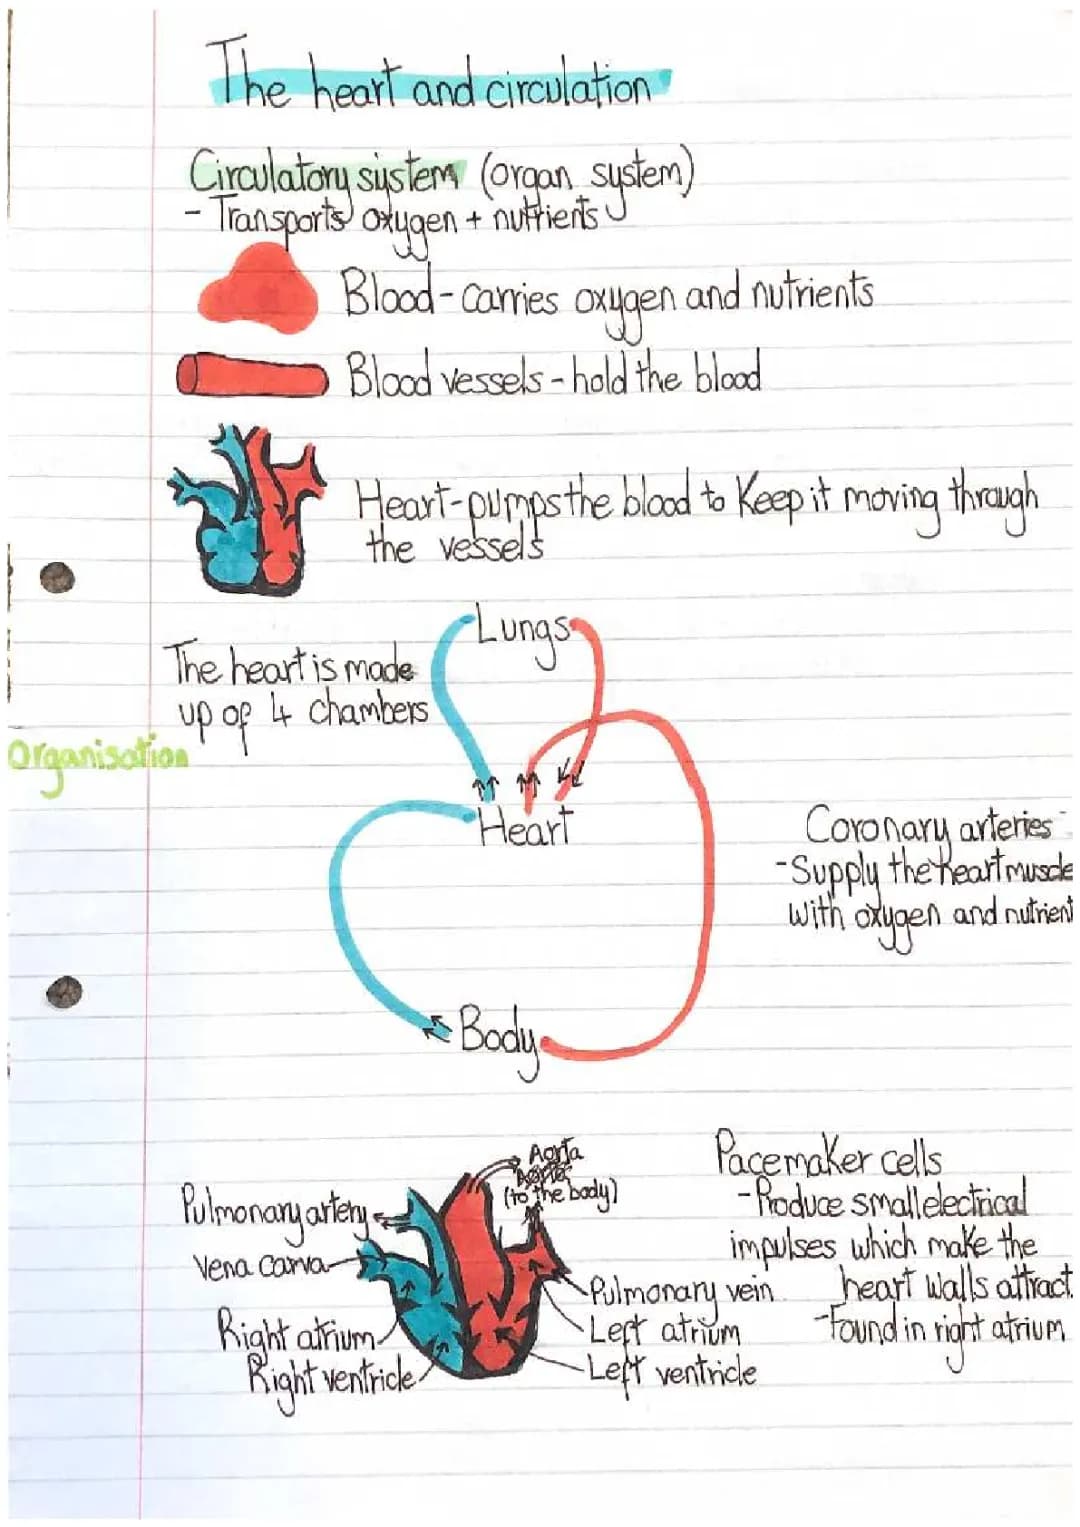 The heart and circulation
Circulatory system (organ system)
- Transports oxygen + nutrients
Blood - carries oxygen and nutrients
Blood vessels - hold the blood
Heart - pumps the blood to keep it moving through
the vessels
Lungs
The heart is made
up of 4 chambers
Organisation
Heart
Coronary arteries
- Supply the heart muscle
with oxygen and nutrient
Body
Aorta
(to the body)
Pulmonary artery
Vena carva
Right atrium
Right ventricle
Pulmonary vein
Left atrium
Left ventricle
Pacemaker cells
- Produce small electrical
impulses which make the
heart walls attract
- Found in right atrium